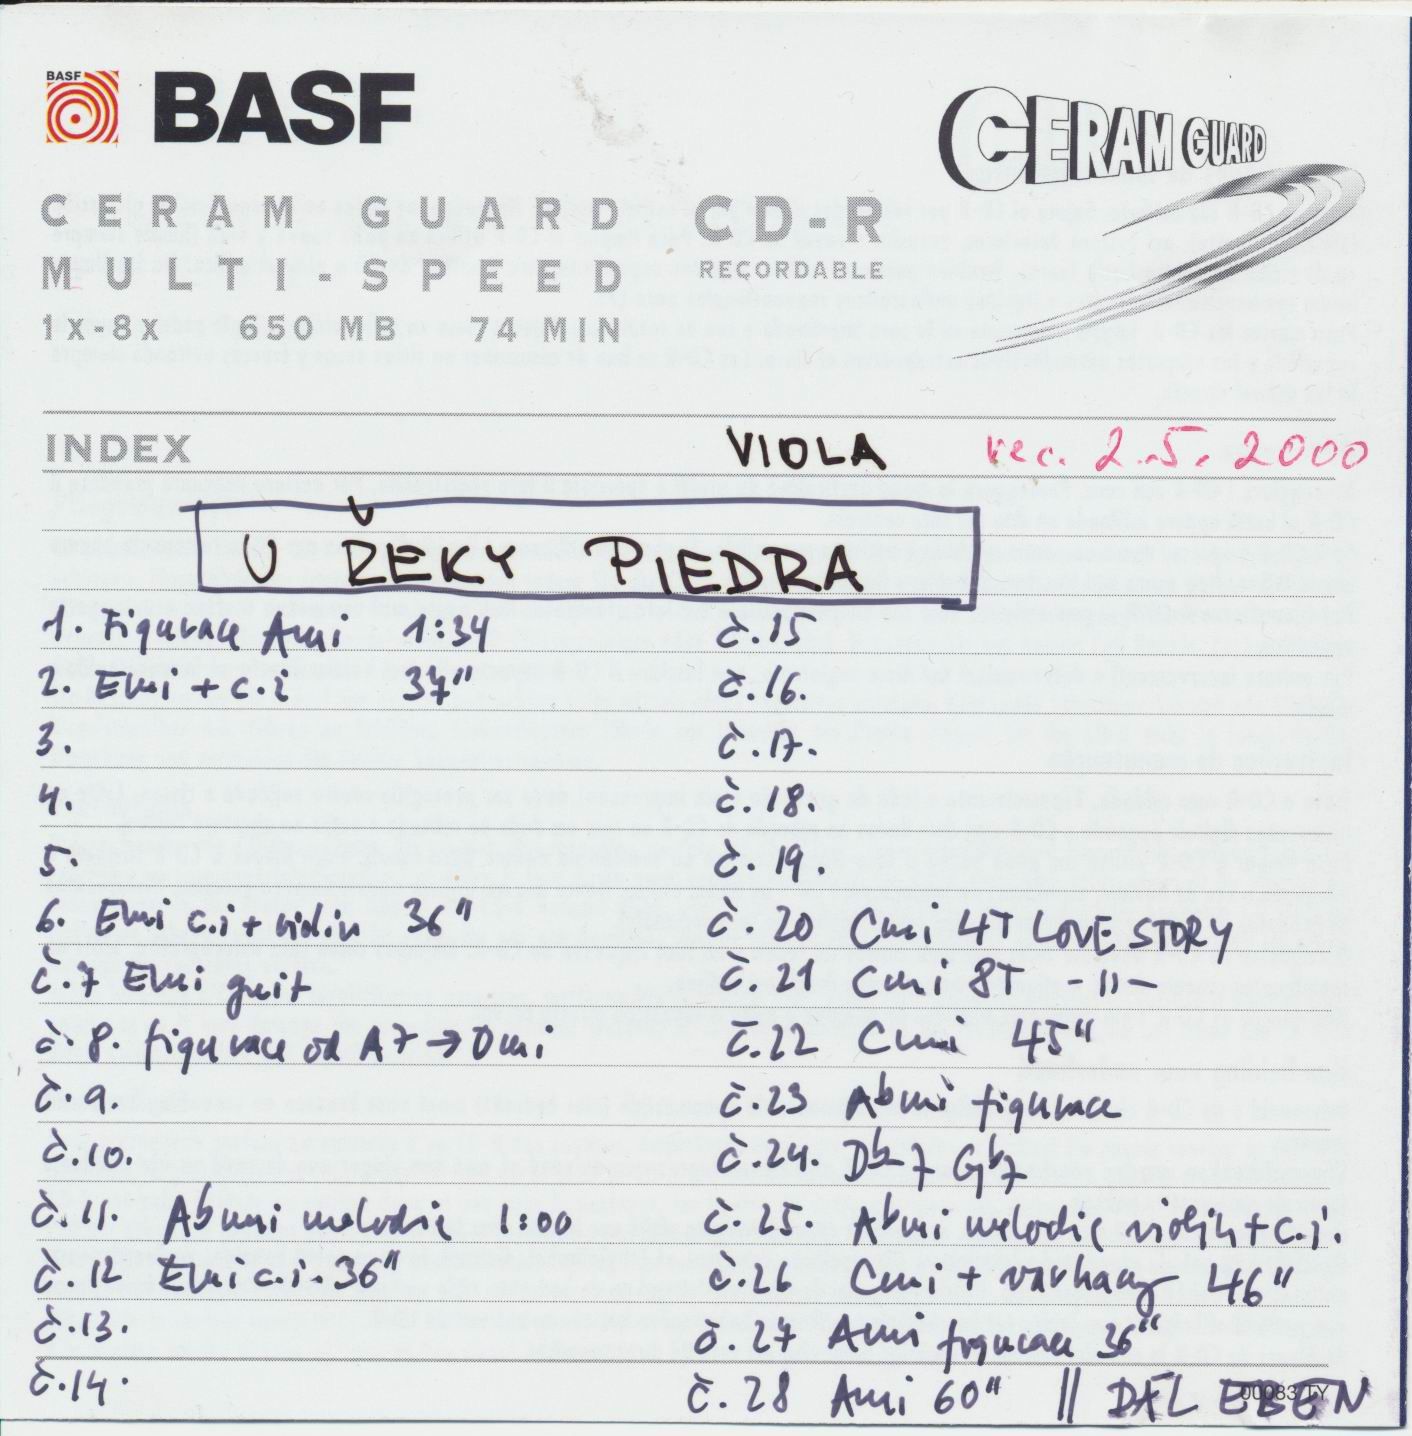 BASF
BASF
CERAM GUARD
CERAM GUARD CD-R
MULTI-SPEED RECORDABLE
1x-8x 650 MB 74 MIN
INDEX
VIOLA rec. 2.5. 2000
U ŘEKY PIEDRA
1. Figurace Ami 1:34
2. Emi + c.i 37"
3.
4.
5.
6. Emi c.i + violin 36"
č.7 Emi guit
č.8. figurace od A7 → Dmi
č.9.
č.10.
č.11. Abmi melodie 1:00
č.12 Emi c.i. 36"
č.13.
č.14.
č.15
č.16.
č.17.
č.18.
č.19.
č.20 Cmi 4T LOVE STORY
č.21 Cmi 8T -11-
č.22 Cmi 45"
č.23 Abmi figurace
č.24. Db7 Gb7
č.25. Abmi melodie violin + c.i.
č.26 Cmi + varhany 46"
č.27 Ami figurace 36"
č.28 Ami 60" || DÁL EBEN
00083 TY